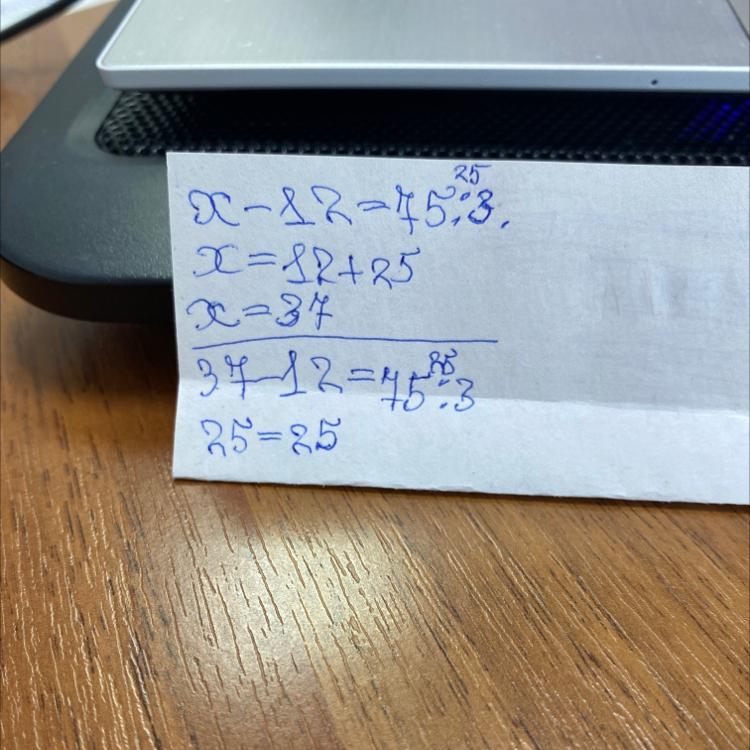 25
x-12=75:3.
x=12+25
x=37
25
37-12=75:3
25=25